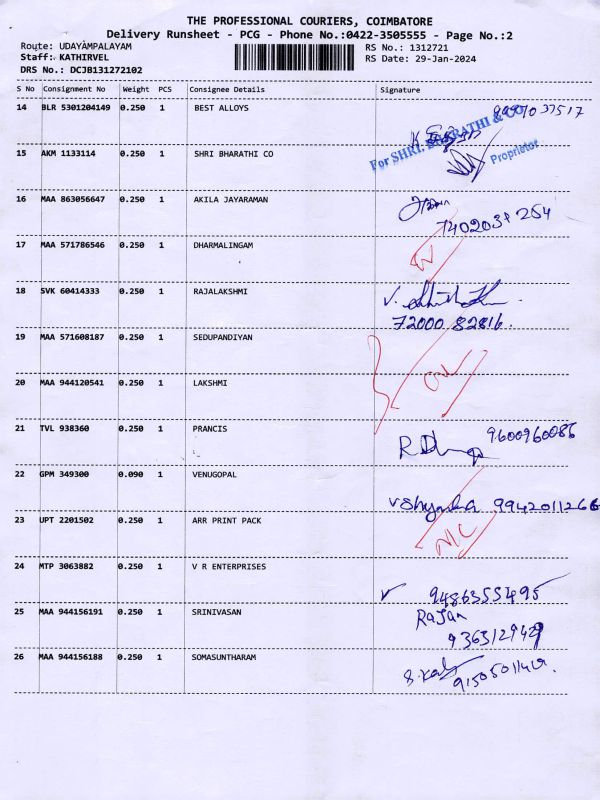 THE PROFESSIONAL COURIERS, COIMBATORE
Delivery Runsheet - PCG - Phone No.:0422-3505555 - Page No.:2
Route: UDAYAMPALAYAM RS No.: 1312721
Staff: KATHIRVEL RS Date: 29-Jan-2024
DRS No.: DCJB131272102
S No Consignment No Weight PCS Consignee Details Signature
14 BLR 5301204149 0.250 1 BEST ALLOYS
15 AKM 1133114 0.250 1 SHRI BHARATHI CO
For SHRI. BHARATHI & CO
Proprietor
16 MAA 863056647 0.250 1 AKILA JAYARAMAN
17 MAA 571786546 0.250 1 DHARMALINGAM
18 SVK 60414333 0.250 1 RAJALAKSHMI
72000 82816.
19 MAA 571608187 0.250 1 SEDUPANDIYAN
20 MAA 944120541 0.250 1 LAKSHMI
21 TVL 938360 0.250 1 PRANCIS
9600960086
22 GPM 349300 0.090 1 VENUGOPAL
9942011266
23 UPT 2201502 0.250 1 ARR PRINT PACK
N/C
24 MTP 3063882 0.250 1 V R ENTERPRISES
9486355495
25 MAA 944156191 0.250 1 SRINIVASAN
Rajan
26 MAA 944156188 0.250 1 SOMASUNTHARAM